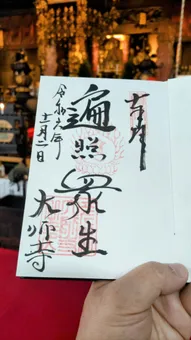 奉拝
遍照衆生
令和元年
十一月二日
大師寺